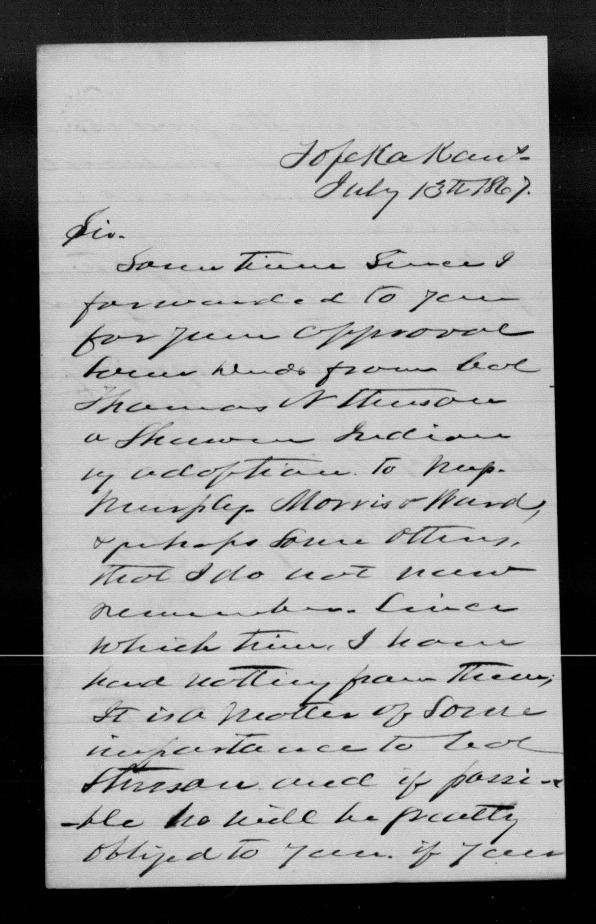 Topeka Kans
July 13th 1867.
Sir.
Some time Since I
forwarded to you
for your approval
Some deeds from Col
Thomas N Stinson
a Shawnee Indian
by adoption to
Murphy Morris & Ward,
& perhaps Some others,
that I do not now
remember. Since
which time, I have
had nothing from them,
It is a matter of Some
importance to Col
Stinson and if possi-
-ble he will be greatly
obliged to you. if you